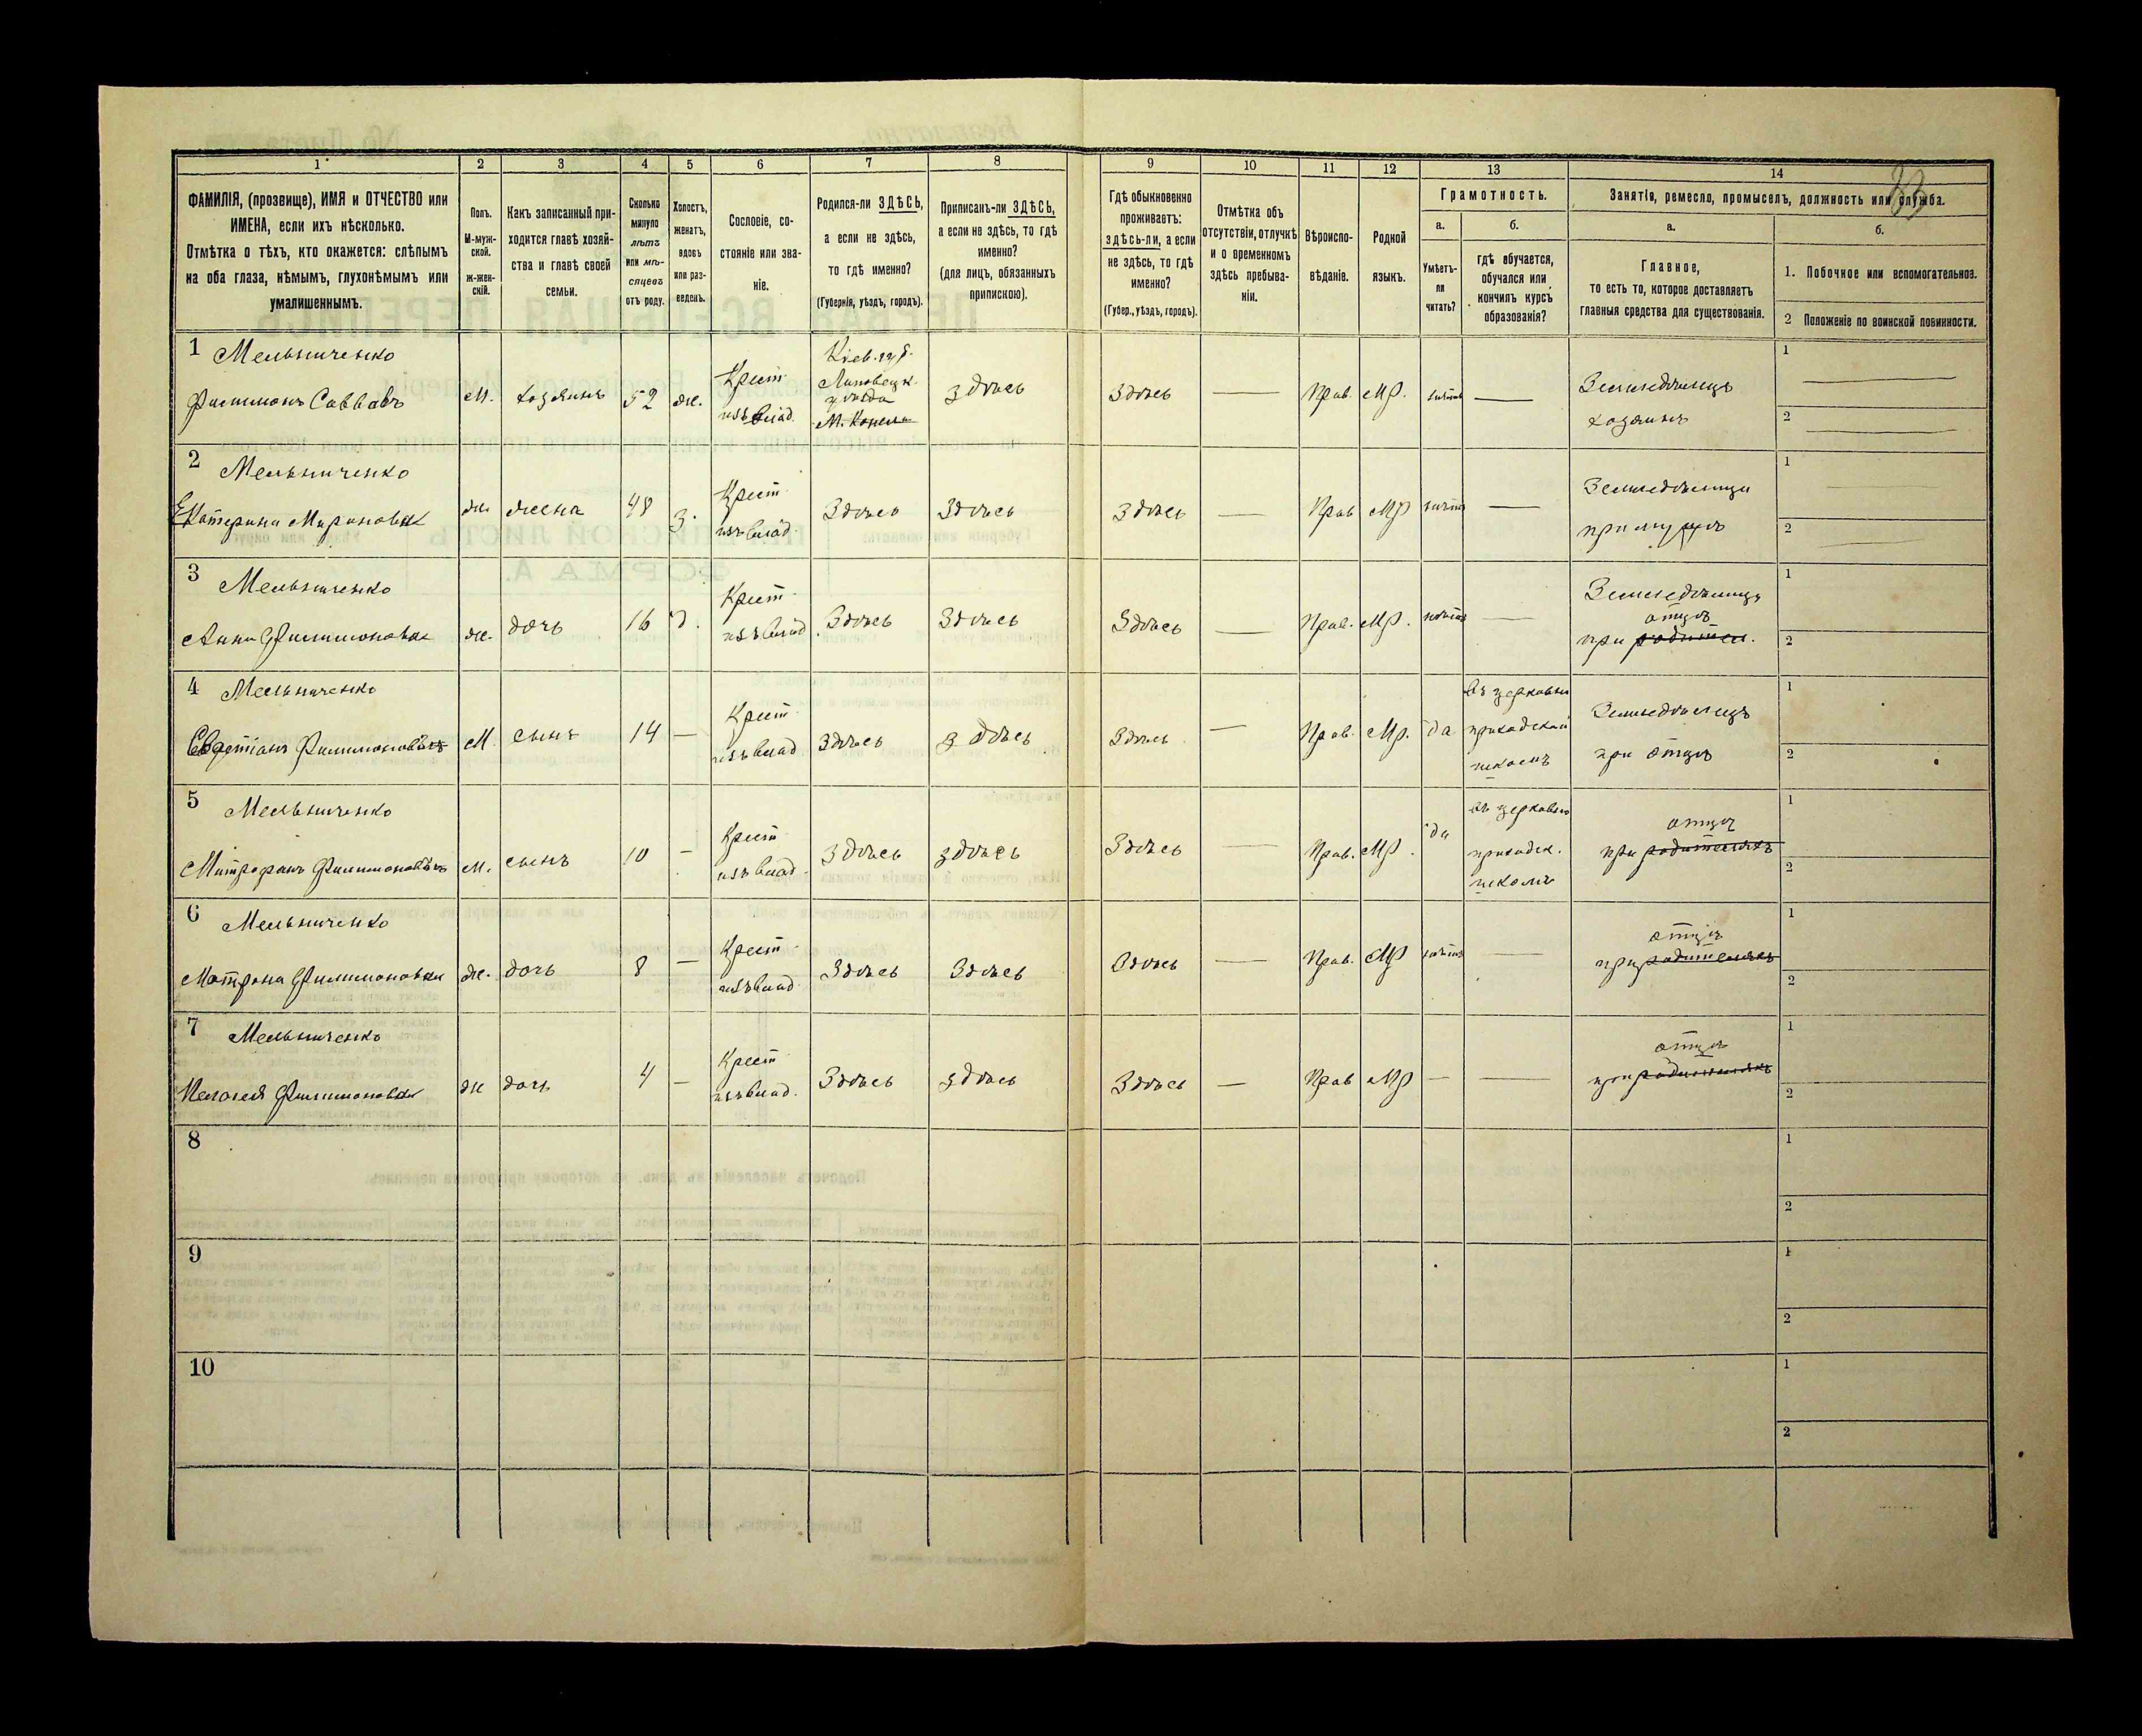 1 2 3 4 5 6 7 8 9 10 11 12 13 14
ФАМИЛІЯ, (прозвище), ИМЯ и ОТЧЕСТВО или
ИМЕНА, если ихъ нѣсколько.
Отмѣтка о тѣхъ, кто окажется: слѣпымъ
на оба глаза, нѣмымъ, глухонѣмымъ или
умалишеннымъ.
Полъ.
М-муж-
ской.
Ж-жен-
скій.
Какъ записанный при-
ходится главѣ хозяй-
ства и главѣ своей
семьи.
Сколько
минуло
лѣтъ
или мѣ-
сяцевъ
отъ роду.
Холостъ,
женатъ,
вдовъ
или раз-
веденъ.
Сословіе, со-
стояніе или зва-
ніе.
Родился-ли ЗДѢСЬ,
а если не здѣсь,
то гдѣ именно?
(Губернія, уѣздъ, городъ).
Приписанъ-ли ЗДѢСЬ,
а если не здѣсь, то гдѣ
именно?
(для лицъ, обязанныхъ
припискою).
Гдѣ обыкновенно
проживаетъ:
здѣсь-ли, а если
не здѣсь, то гдѣ
именно?
(Губер., уѣздъ, городъ).
Отмѣтка объ
отсутствіи, отлучкѣ
и о временномъ
здѣсь пребыва-
ніи.
Вѣроиспо-
вѣданіе.
Родной
языкъ.
Грамотность.
а.
Умѣетъ-
ли
читать?
б.
гдѣ обучается,
обучался или
кончилъ курсъ
образованія?
Занятія, ремесло, промыселъ, должность или служба.
33
а.
Главное,
то есть то, которое доставляетъ
главныя средства для существованія.
б.
1. Побочное или вспомогательное.
2 Положеніе по воинской повинности.
1 Мельниченко
Филимонъ Саввовъ
М. хозяинъ 52 ж.
Крест.
изъ влад.
Кіев. губ.
Липовецк.
уѣзда
М. Конела
здѣсь Здѣсь — Прав. Мр. нѣтъ —
Земледѣлецъ
хозяинъ
1
2
2 Мельниченко
Екатерина Мироновна
ж. жена 48 З.
Крест.
изъ влад.
Здѣсь Здѣсь Здѣсь — Прав Мр нѣтъ —
Земледѣлица
при мужѣ
1
2
3 Мельниченко
Анна Филимоновна
ж. дочь 16 д.
Крест.
изъ влад.
Здѣсь Здѣсь Здѣсь — Прав. Мр. нѣтъ —
Земледѣлица
отцѣ
при родител.
1
2
4 Мельниченко
Филимоновъ
М. сынъ 14 —
Крест.
изъ влад.
Здѣсь здѣсь Здѣсь — Прав. Мр. да
въ церковно
приходской
школѣ
Земледѣлецъ
при отцѣ
1
2
5 Мельниченко
Митрофанъ Филимоновъ
М. сынъ 10 —
Крест.
изъ влад.
Здѣсь здѣсь Здѣсь — Прав. Мр. да
въ церковно
приходск.
школѣ
отцѣ
при родителяхъ
1
2
6 Мельниченко
Матрона Филимоновна
ж. дочь 8 —
Крест.
изъ влад.
Здѣсь Здѣсь Здѣсь — Прав. Мр нѣтъ —
отцѣ
при родителяхъ
1
2
7 Мельниченко
Пелагея Филимоновна
ж дочь 4 —
Крест
изъ влад.
Здѣсь здѣсь Здѣсь — Прав Мр — —
отцѣ
при родителяхъ
1
2
8
1
2
9
1
2
10
1
2